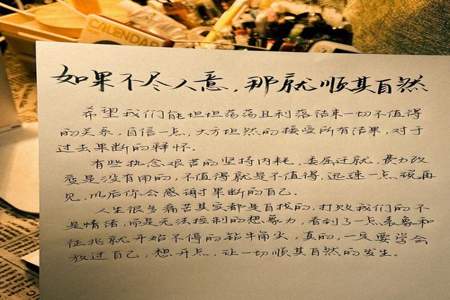 CALENDAR
如果不尽人意，那就顺其自然
希望我们能坦坦荡荡且利落结束一切不值得
的关系，自信一点，大方坦然的接受所有结果，对于
过去果断的释怀。
有些执念艰苦的坚持内耗，委屈迁就，费力改
变是没有用的，不值得就是不值得，迅速一点，说再
见，以后你会感谢果断的自己。
人生很多痛苦其实都是自找的，打败我们的不
是情绪，而是无法控制的想象力，看到了一点表象和
征兆就开始不停的钻牛角尖，真的，一定要学会
放过自己，想开点，让一切顺其自然的发生。